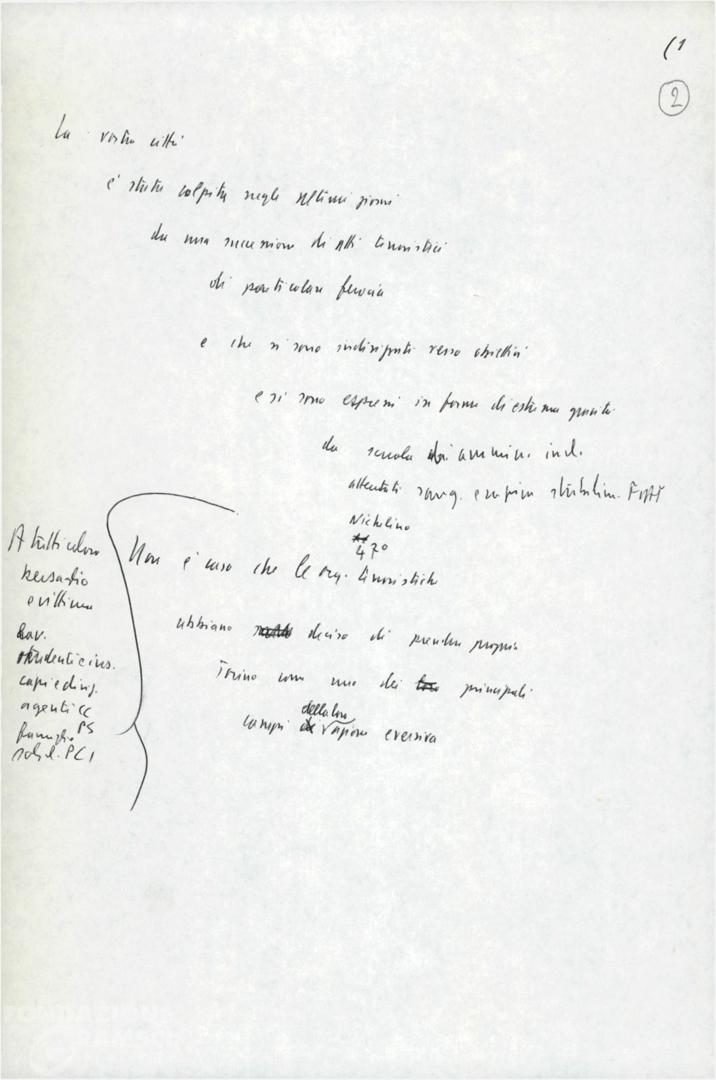 (1
2
La vostra città
è stata colpita negli ultimi giorni
da una successione di atti terroristici
di particolare ferocia
e che si sono indirizzati verso obiettivi
e si sono espressi in forme di estrema gravità
da scuola di ammin. ind.
attentati sang. stabilim. FIAT
Nichelino
47°
Non è caso che le org. terroristiche
abbiano deciso di prendere proprio
Torino come uno dei principali
campi della loro azione eversiva
A tutti coloro
bersaglio
e vittima
Lav.
studenti e ins.
capi e dirig.
agenti CC
PS
famiglie
sol. d. PCI
FONDAZIONE
GRAMSCI